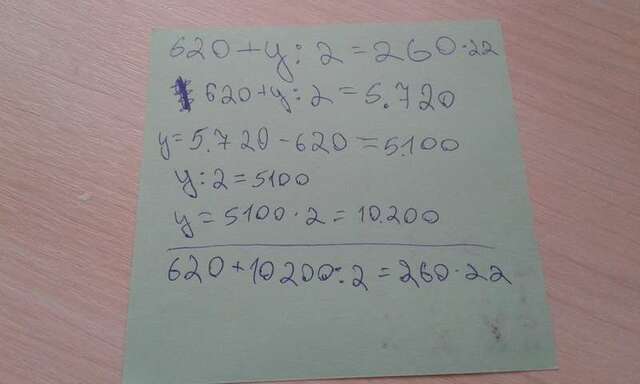 620+y:2=260·22
620+y:2=5.720
y=5.720-620=5.100
y:2=5100
y=5100·2=10.200
620+10200:2=260·22